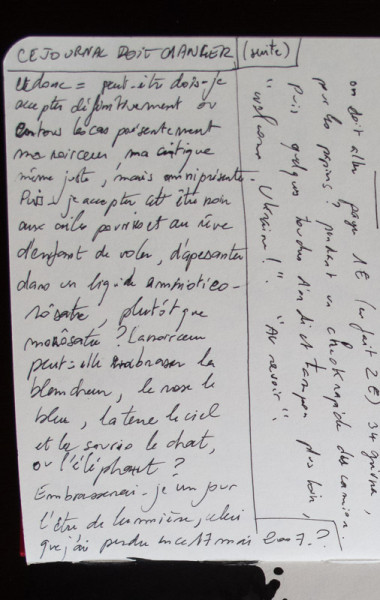 CE JOURNAL DOIT CHANGER (suite)
donc = peut-être dois-je
accepter définitivement ou
en tous les cas présentement
ma noirceur, ma critique
même juste, mais omniprésente.
Puis-je accepter cet être noir
aux ailes pourries et au rêve
d'enfant de voler, d'apesanter
dans un liquide amniotico-
rosâtre, plutôt que
morosâtre ? La noirceur
peut-elle embrasser la
blancheur, le rose le
bleu, la terre le ciel
et la souris le chat,
ou l'éléphant ?
Embrasserai-je un jour
l'être de lumière, celui
que j'ai perdu en ce 17 mai 2007 ?
on doit aller payer 1€ (en fait 2€) 34 grivna,
pour les papiers ? pendant un check rapide du camion.
puis quelques tondus d'indict tampon plus loin,
"welcome Ukraine !". "Au revoir".